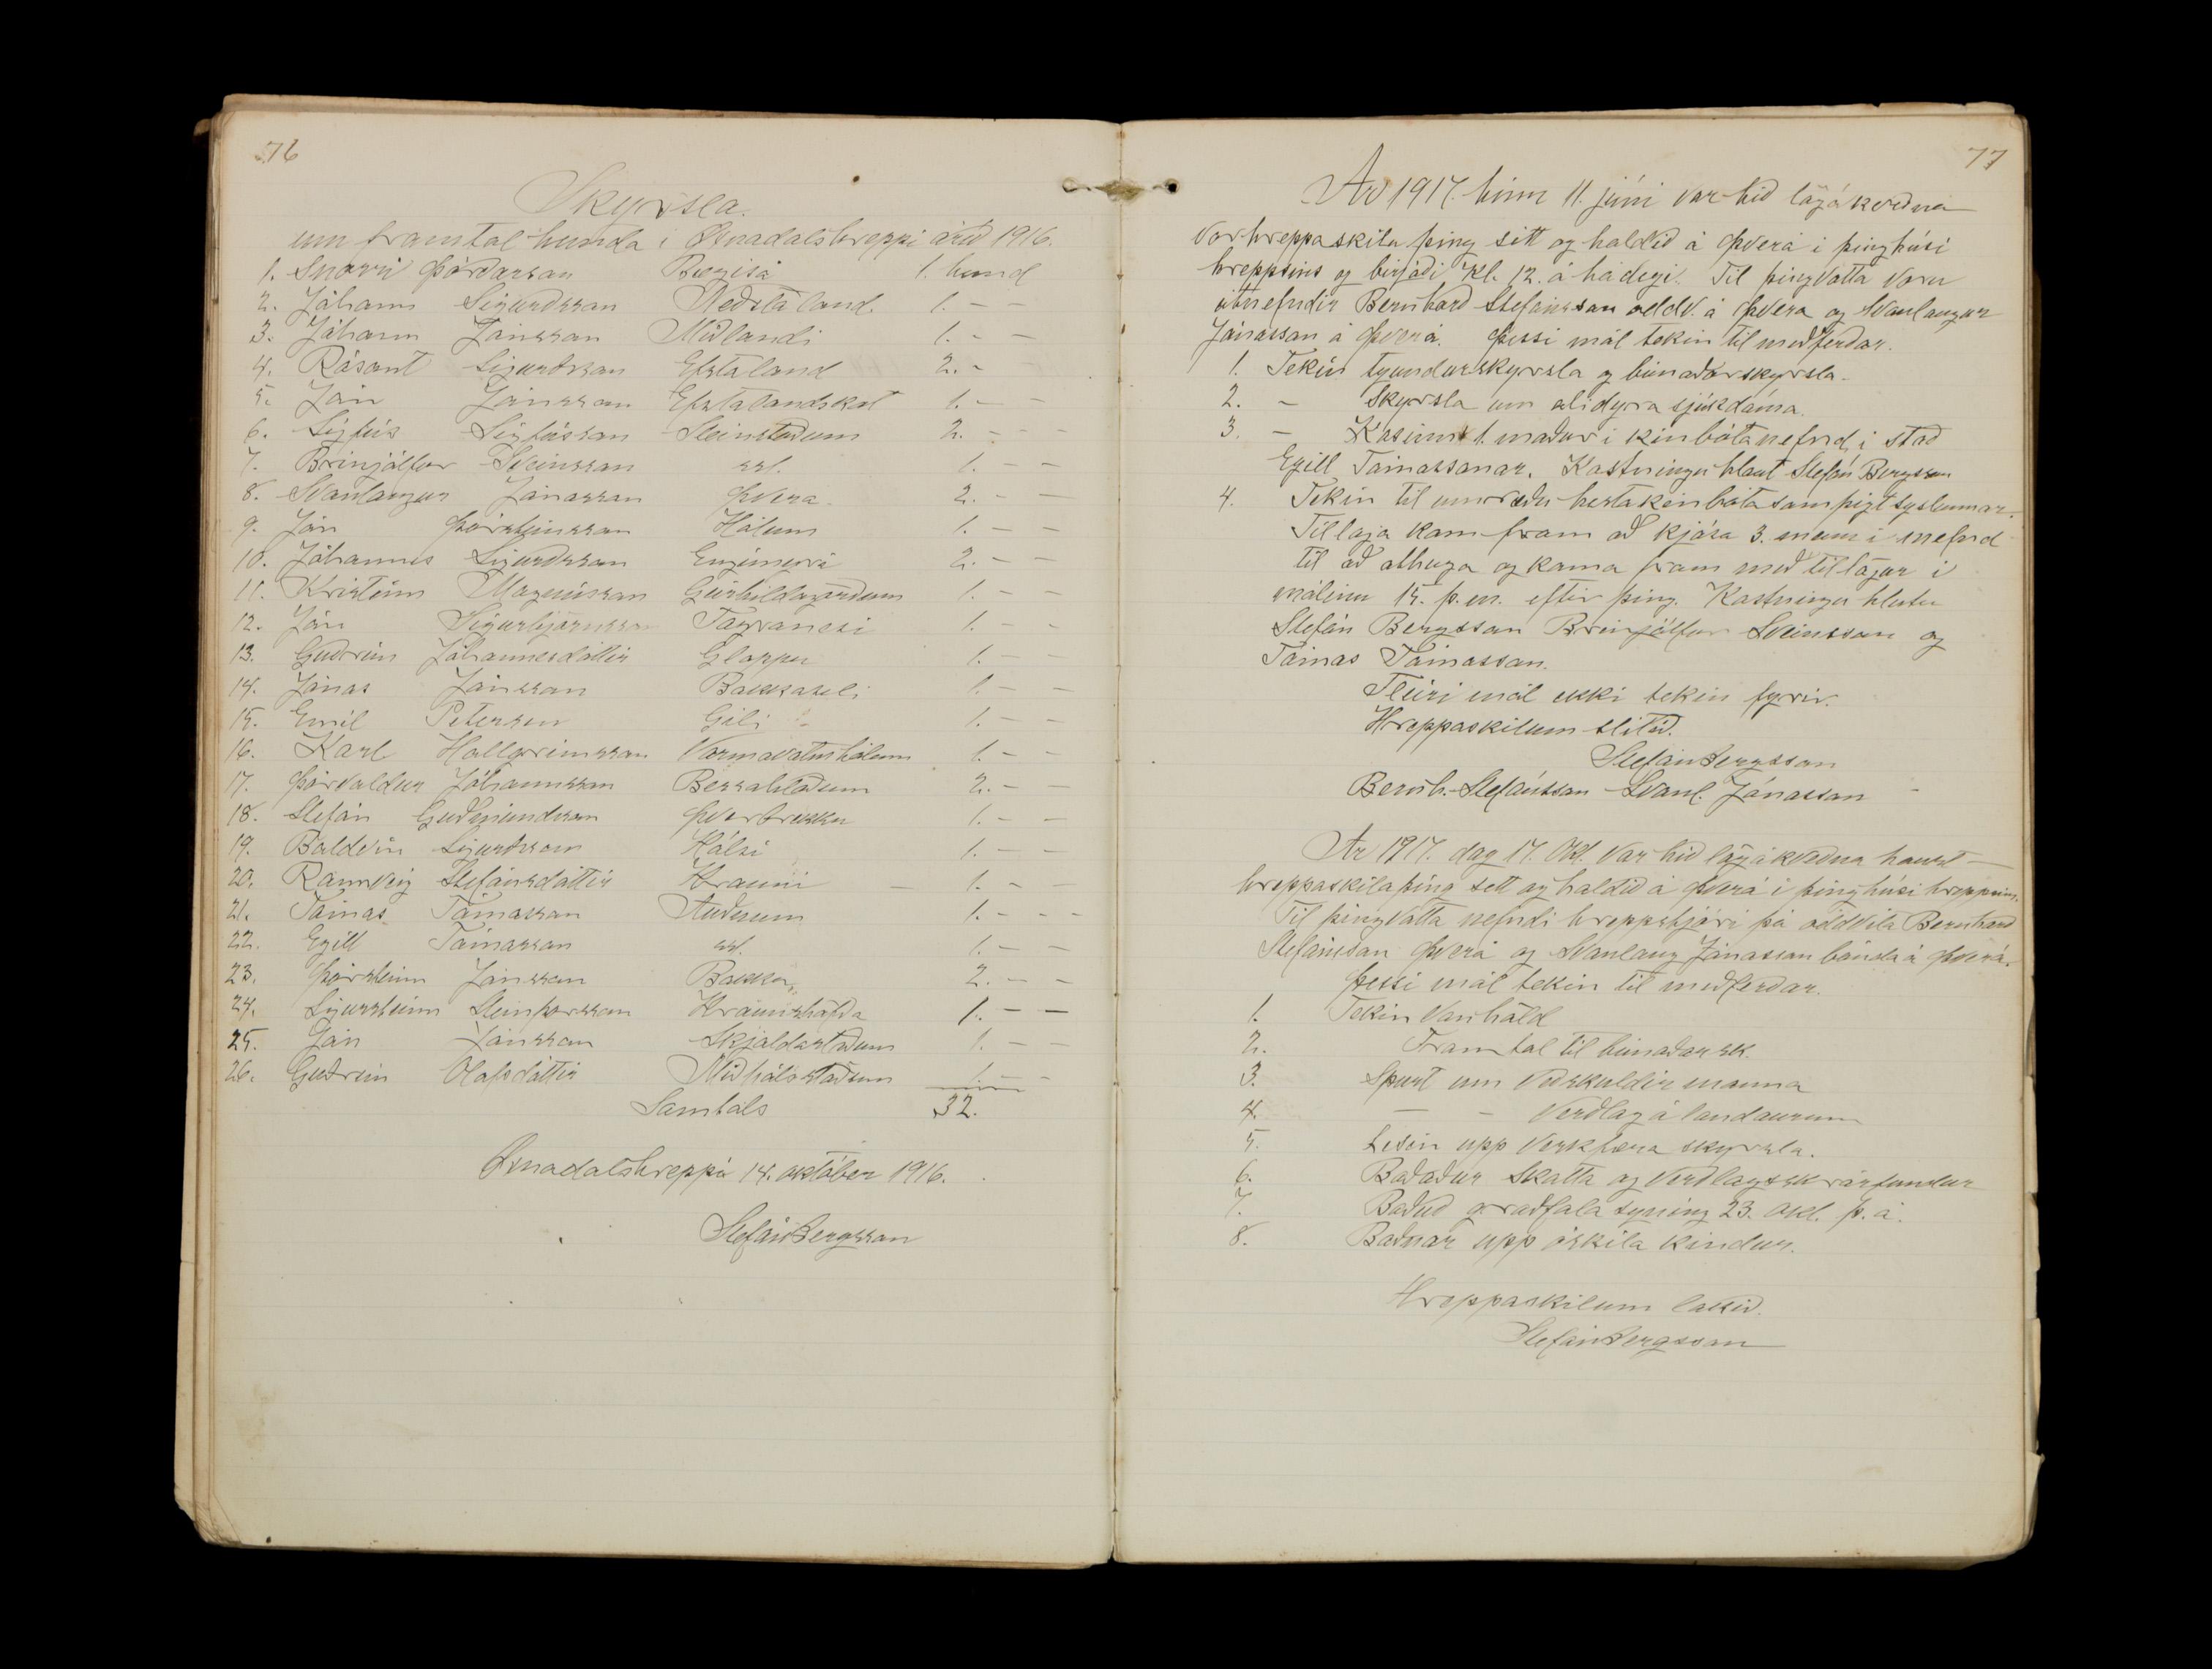 76
Skyrsla.
um framtal hunda i Öxnadalshreppi árið 1916.
1. Snorri Þórðarson Bægisá 1. hund
2. Jóhann Sigurdsson Neðstaland. 1. - -
3. Jóhann Jónsson Miðlandi 1. - -
4. Rósant Sigurðsson Efstaland 2. - -
5. Jón Jónsson Efstalandskot 1. - -
6. Sigfús Sigfússon Steinstöðum 2. - -
7. Brinjólfur Sveinsson sst. 1. - -
8. Svanlaugur Jónasson Þvera 2. - -
9. Jón Þorsteinsson Hólum 1. - -
10. Jóhannes Sigurðsson Engimyri 2. - -
11. Kristinn Magnússon Geirhildagörðum 1. - -
12. Jón Sigurbjörnsson Fagranesi 1. - -
13. Guðrún Jóhannesdóttir Gloppu 1. - -
14. Jónas Jónsson Bakkaseli 1. - -
15. Emil Petersen Gili 1. - -
16. Karl Hallgrimsson Varmavatnshólum 1. - -
17. Þorvaldur Jóhannsson Bessahlöðum 2. - -
18. Stefán Guðmundsson Þverbrekku 1. - -
19. Baldvin Sigurðsson Hálsi 1. - -
20. Rannveig Stefánsdóttir Hrauni - 1. - -
21. Tómas Tómasson Auðnum 1. - - -
22. Egill Tómasson sst. 1. - -
23. Þorsteinn Jónsson Bakka 2. - -
24. Sigursteinn Steinþorsson Hraunshöfða 1. - -
25. Jón Jónsson Skjaldastöðum 1. - -
26. Guðrún Olafsdóttir Miðhálsstöðum 1. - -
Samtals 32.
Öxnadalshreppi 14. október 1916.
Stefán Bergsson
77
Ar 1917. hinn 11. júni var hið lögákveðna
vorhreppaskila þing sett og haldið á Þverá i þinghúsi
hreppsins og birjaði kl. 12. á hádegi. Til þingvotta voru
útnefndir Bernharð Stefánsson oddv. á Þvera og Svanlaugur
Jónasson á Þverá. Þessi mál tekin til meðferðar.
1. Tekin tyundarskyrsla og búnaðarskyrsla.
2. - Skyrsla um alidyra sjúkdóma.
3. - Kosinn 1. maður i kinbótanefnd, i stað
Egill Tómassonar. Kostningu hlaut Stefán Bergsson
4. Tekin til umræðu hestakinbótasamþigt syslunnar.
Tillaga kom fram að kjósa 3. menn i nefnd
til að athuga og koma fram með tillögur i
málinu 15. þ.m. eftir þing. Kostningu hlutu
Stefán Bergsson Brinjólfur Sveinsson og
Tómas Tómasson.
Fleiri mál ekki tekin fyrir.
Hreppaskilum slitið.
Stefán Bergsson
Bernh. Stefánsson Svanl. Jónasson
Ar 1917. dag 17. Okt. var hið lögákveðna haust-
hreppaskilaþing sett og haldið á Þverá i þinghúsi hreppsins.
Til þingvotta nefndi hreppstjóri þá oddvita Bernharð
Stefánsson Þverá og Svanlaug Jónasson bónda á Þverá.
Þessi mál tekin til meðferðar.
1. Tekin vanhöld
2. Framtal til búnaðarsk.
3. Spurt um veðskuldir manna
4. - - Verðlag á landaurum
5. Lesin upp verkfæra skyrsla.
6. Boðaður skatta og verðlagsskrárfundur
7. Boðuð graðfola syning 23. okt. þ.á.
8. Boðnar upp óskila kindur.
Hreppaskilum lokið.
Stefán Bergsson